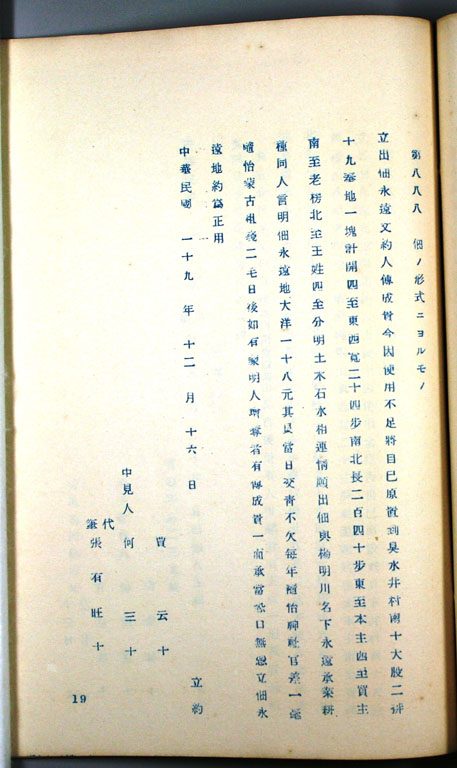 第八八八 佃ノ形式ニヨルモノ
立出佃永遠文約人傅成貴今因使用不足將自己原置到吳水井村南十大股二犋
十九奎地一塊計開四至東西寬二十四步南北長二百四十步東至本主西至買主
南至老楞北至王姓四至分明土木石水相連情願出佃與楊明川名下永遠承業耕
種同人言明佃永遠地大洋一十八元其見當日交淸不欠每年隨怡神社官差一毫
隨怡蒙古租錢二毛日後如有蒙明人爭奪者有傅成貴一面承當恐口無憑立佃永
遠地約爲正用
中華民國 一十九 年 十二 月 十六 日
賈 云十 立約
中見人 何 三十
代筆 張有旺十
19